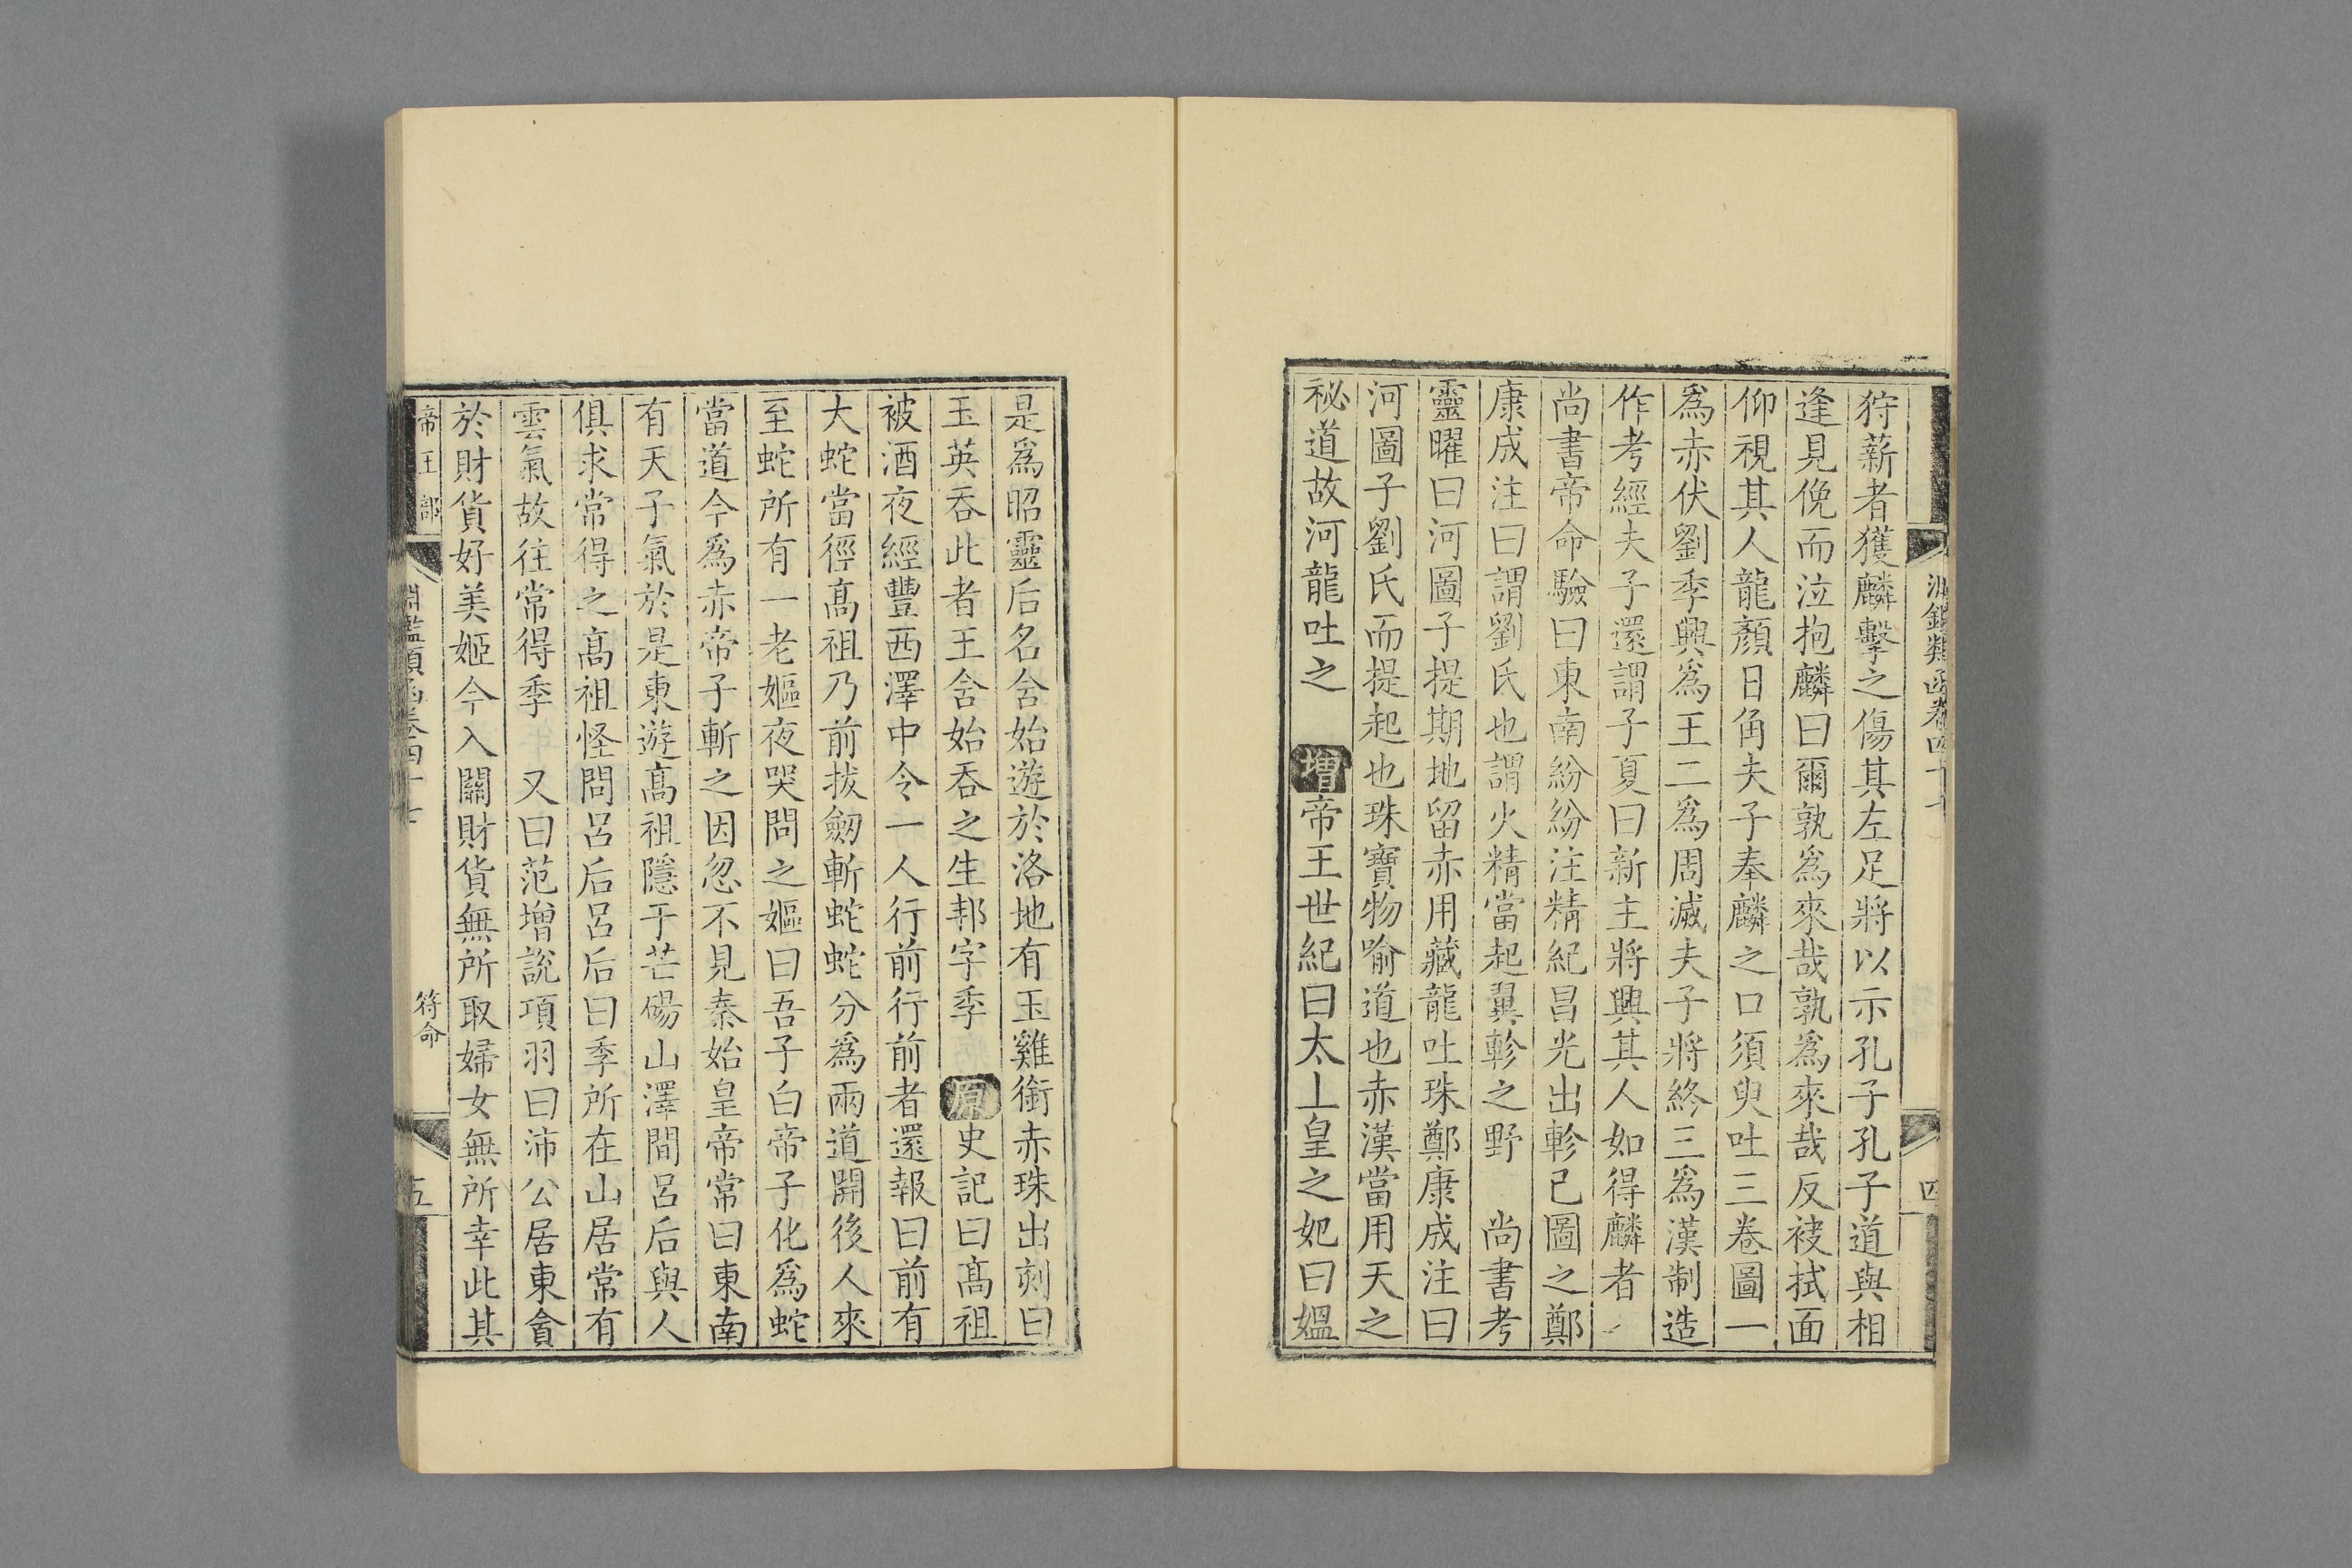 淵鑑類函卷四十七
四
狩薪者獲麟擊之傷其左足將以示孔子孔子道與相
逢見俛而泣抱麟曰爾孰爲來哉孰爲來哉反袂拭面
仰視其人龍顏日角夫子奉麟之口須臾吐三卷圖一
爲赤伏劉季興爲王二爲周滅夫子將終三爲漢制造
作考經夫子還謂子夏曰新主將興其人如得麟者
尚書帝命驗曰東南紛紛注精紀昌光出軫已圖之鄭
康成注曰謂劉氏也謂火精當起翼軫之野 尚書考
靈曜曰河圖子提期地留赤用藏龍吐珠鄭康成注曰
河圖子劉氏而提起也珠寶物喻道也赤漢當用天之
祕道故河龍吐之 增帝王世紀曰太上皇之妃曰媼
是爲昭靈后名含始遊於洛地有玉雞銜赤珠出刻曰
玉英吞此者王含始吞之生邦字季 原史記曰高祖
被酒夜經豐西澤中令一人行前行前者還報曰前有
大蛇當徑高祖乃前拔劒斬蛇蛇分爲兩道開後人來
至蛇所有一老嫗夜哭問之嫗曰吾子白帝子化爲蛇
當道今爲赤帝子斬之因忽不見秦始皇帝常曰東南
有天子氣於是東遊高祖隱于芒碭山澤間呂后與人
俱求常得之高祖怪問呂后呂后曰季所在山居常有
雲氣故往常得季 又曰范增說項羽曰沛公居東貪
於財貨好美姬今入關財貨無所取婦女無所幸此其
帝王部
淵鑑類函卷四十七
符命
五